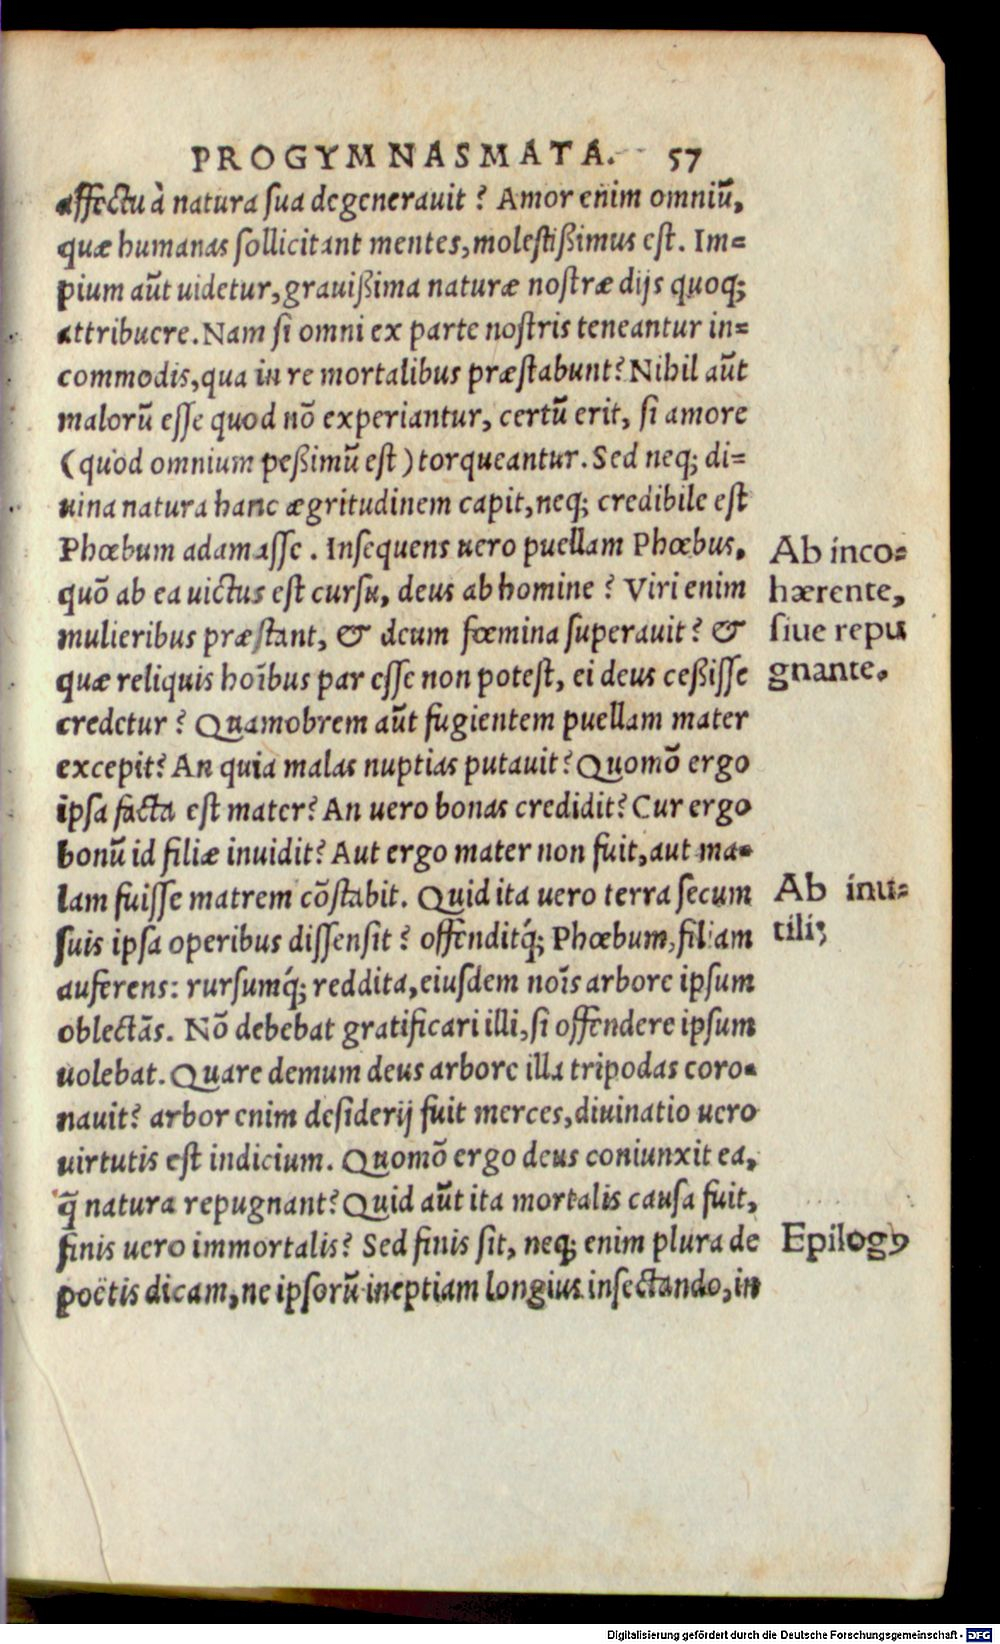 PROGYMNASMATA. 57
affectu à natura sua degenerauit? Amor enim omniũ,
quæ humanas sollicitant mentes, molestißimus est. Im=
pium aũt uidetur, grauißima naturæ nostræ dijs quoq;
attribuere. Nam si omni ex parte nostris teneantur in=
commodis, qua in re mortalibus præstabunt? Nihil aũt
malorũ esse quod nõ experiantur, certũ erit, si amore
(quod omnium peßimũ est) torqueantur. Sed neq; di=
uina natura hanc ægritudinem capit, neq; credibile est
Phœbum adamasse. Insequens uero puellam Phœbus,
quõ ab ea uictus est cursu, deus ab homine? Viri enim
mulieribus præstant, & deum fœmina superauit? &
quæ reliquis hoĩbus par esse non potest, ei deus ceßisse
credetur? Quamobrem aũt fugientem puellam mater
excepit? An quia malas nuptias putauit? Quomõ ergo
ipsa facta est mater? An uero bonas credidit? Cur ergo
bonũ id filiæ inuidit? Aut ergo mater non fuit, aut ma=
lam fuisse matrem cõstabit. Quid ita uero terra secum
suis ipsa operibus dissensit? offenditq́; Phœbum, filiam
auferens: rursumq́; reddita, eiusdem noĩs arbore ipsum
oblectãs. Nõ debebat gratificari illi, si offendere ipsum
uolebat. Quare demum deus arbore illa tripodas coro=
nauit? arbor enim desiderij fuit merces, diuinatio uero
uirtutis est indicium. Quomõ ergo deus coniunxit ea,
q̃ natura repugnant? Quid aũt ita mortalis causa fuit,
finis uero immortalis? Sed finis sit, neq; enim plura de
poëtis dicam, ne ipsorũ ineptiam longius insectando, in
Ab inco=
hærente,
siue repu
gnante.
Ab inu=
tili;
Epilogꝰ
Digitalisierung gefördert durch die Deutsche Forschungsgemeinschaft - DFG